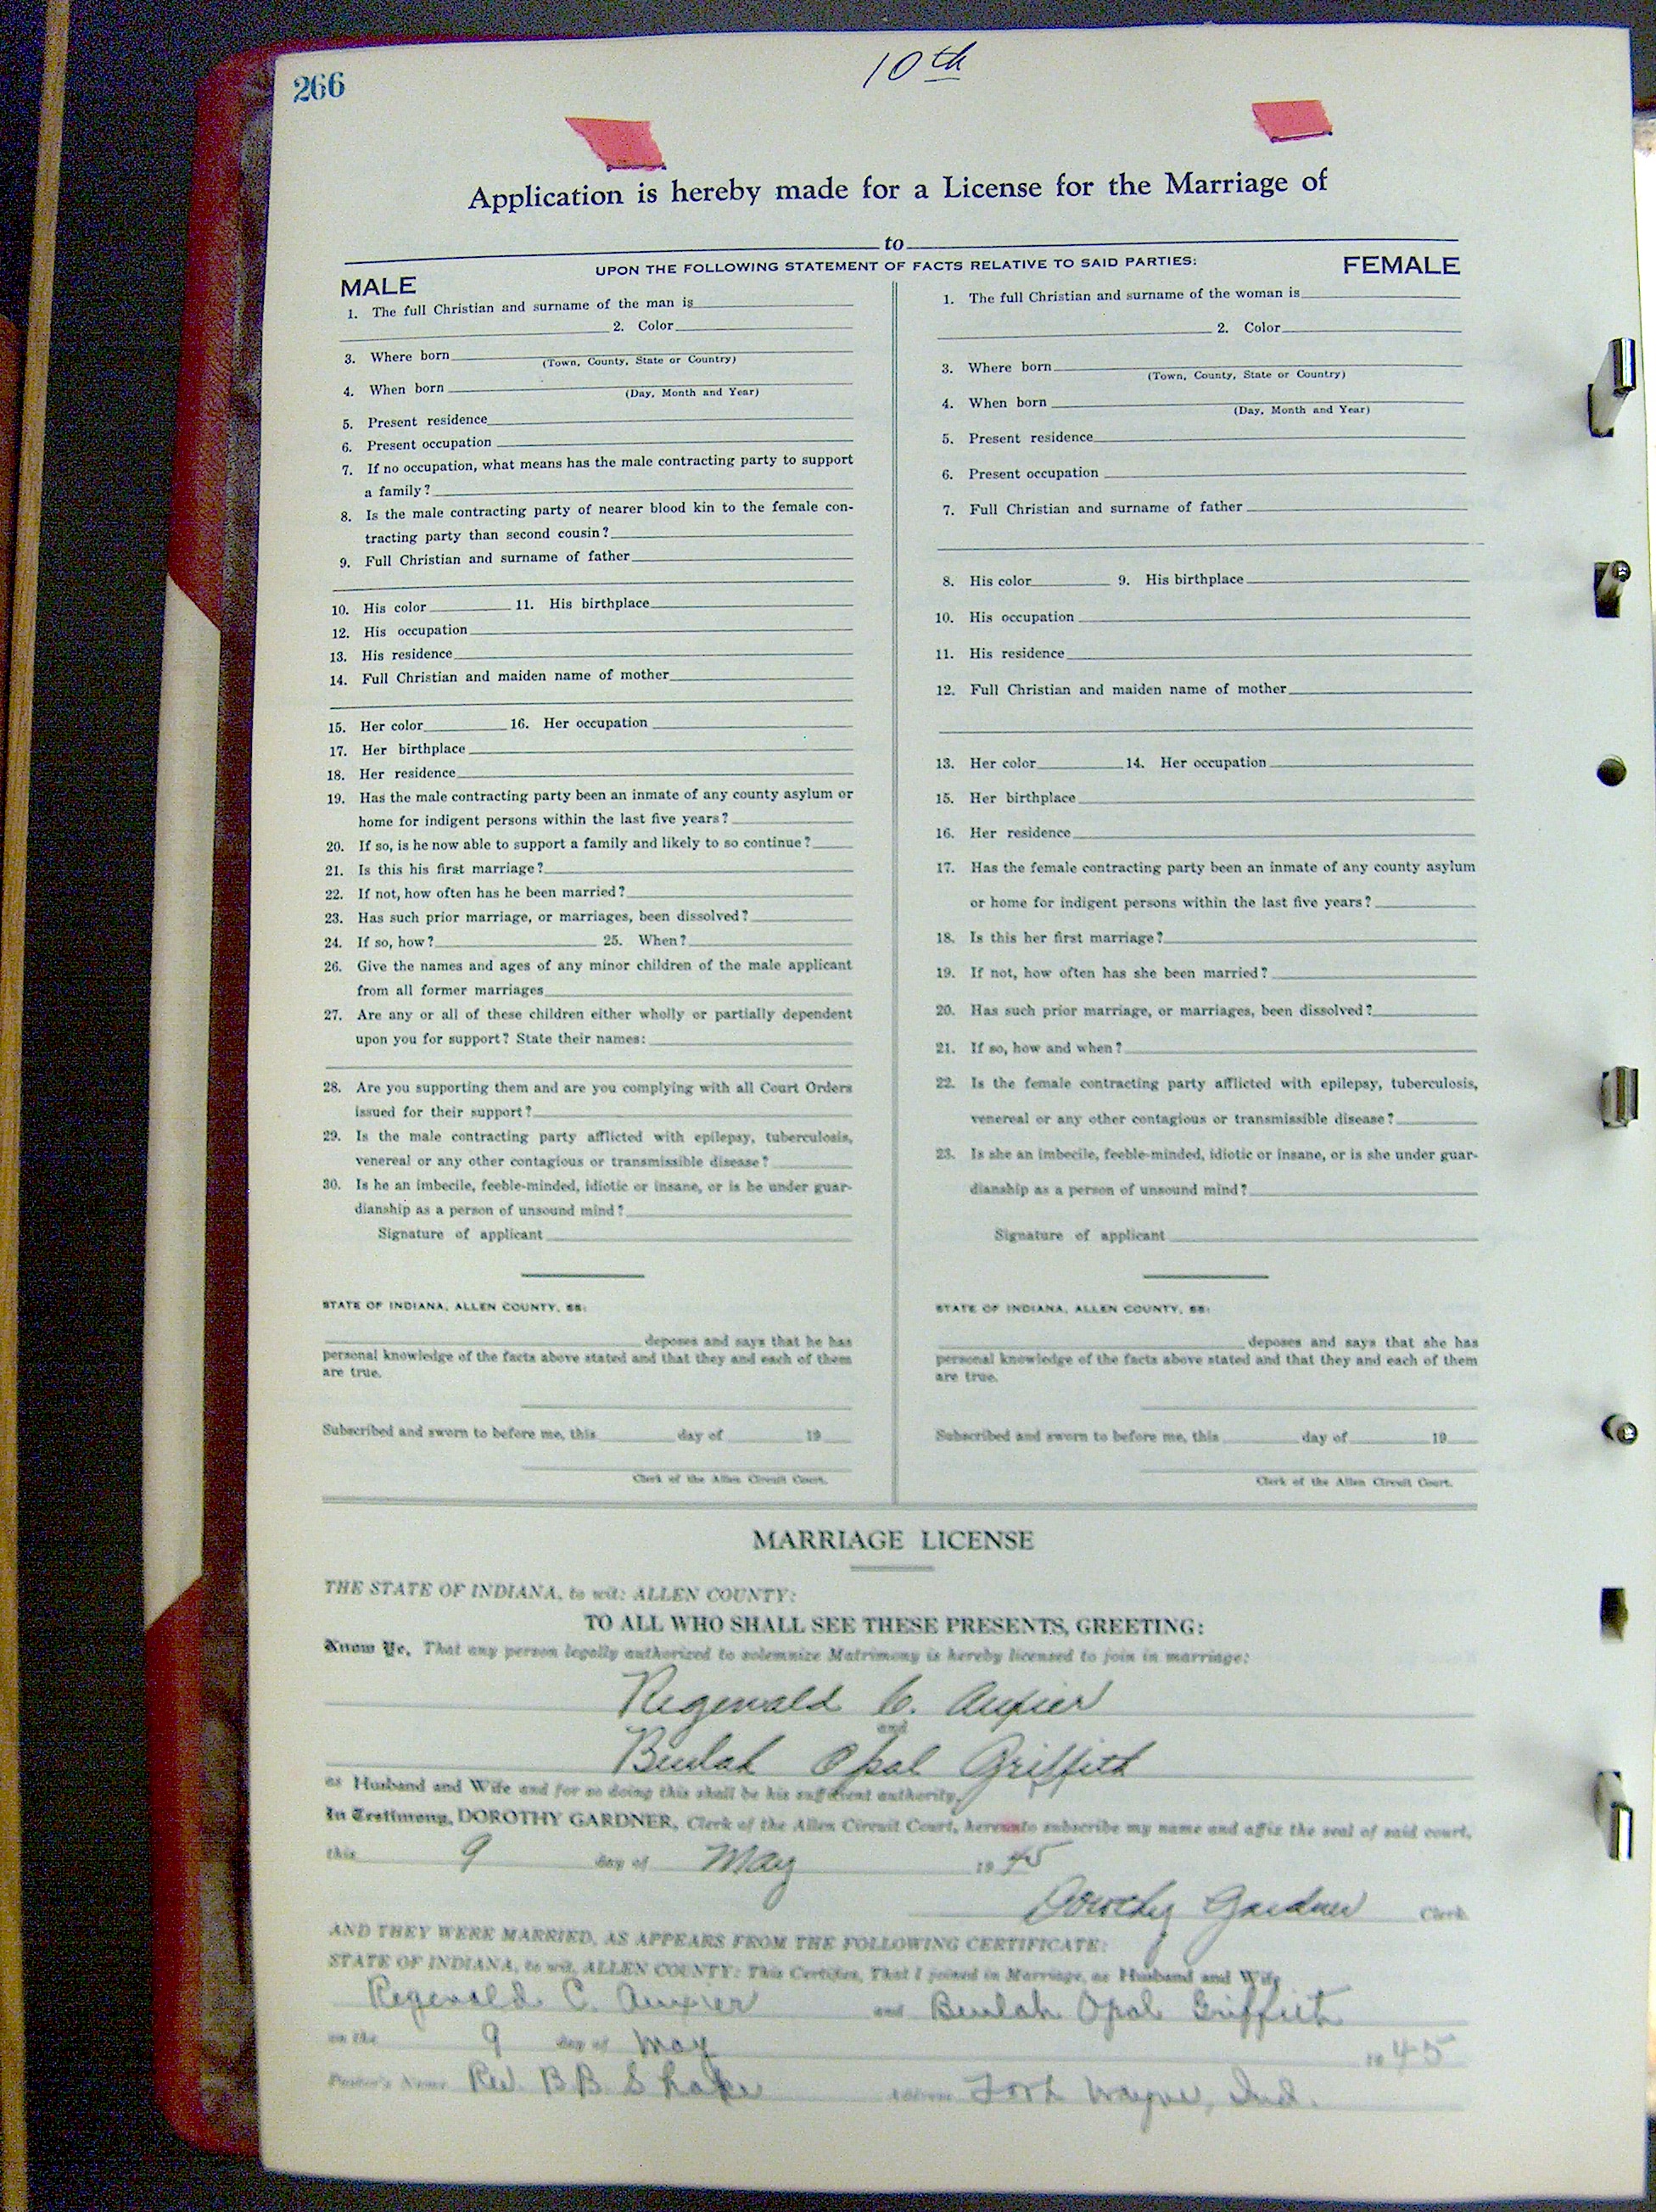 266
10th
Application is hereby made for a License for the Marriage of
to
UPON THE FOLLOWING STATEMENT OF FACTS RELATIVE TO SAID PARTIES:
MALE
1. The full Christian and surname of the man is
2. Color
3. Where born
(Town, County, State or Country)
4. When born
(Day, Month and Year)
5. Present residence
6. Present occupation
7. If no occupation, what means has the male contracting party to support
a family?
8. Is the male contracting party of nearer blood kin to the female con-
tracting party than second cousin?
9. Full Christian and surname of father
10. His color 11. His birthplace
12. His occupation
13. His residence
14. Full Christian and maiden name of mother
15. Her color 16. Her occupation
17. Her birthplace
18. Her residence
19. Has the male contracting party been an inmate of any county asylum or
home for indigent persons within the last five years?
20. If so, is he now able to support a family and likely to so continue?
21. Is this his first marriage?
22. If not, how often has he been married?
23. Has such prior marriage, or marriages, been dissolved?
24. If so, how? 25. When?
26. Give the names and ages of any minor children of the male applicant
from all former marriages
27. Are any or all of these children either wholly or partially dependent
upon you for support? State their names:
28. Are you supporting them and are you complying with all Court Orders
issued for their support?
29. Is the male contracting party afflicted with epilepsy, tuberculosis,
venereal or any other contagious or transmissible disease?
30. Is he an imbecile, feeble-minded, idiotic or insane, or is he under guar-
dianship as a person of unsound mind?
Signature of applicant
STATE OF INDIANA, ALLEN COUNTY, SS:
deposes and says that he has
personal knowledge of the facts above stated and that they and each of them
are true.
Subscribed and sworn to before me, this day of 19
Clerk of the Allen Circuit Court.
FEMALE
1. The full Christian and surname of the woman is
2. Color
3. Where born
(Town, County, State or Country)
4. When born
(Day, Month and Year)
5. Present residence
6. Present occupation
7. Full Christian and surname of father
8. His color 9. His birthplace
10. His occupation
11. His residence
12. Full Christian and maiden name of mother
13. Her color 14. Her occupation
15. Her birthplace
16. Her residence
17. Has the female contracting party been an inmate of any county asylum
or home for indigent persons within the last five years?
18. Is this her first marriage?
19. If not, how often has she been married?
20. Has such prior marriage, or marriages, been dissolved?
21. If so, how and when?
22. Is the female contracting party afflicted with epilepsy, tuberculosis,
venereal or any other contagious or transmissible disease?
23. Is she an imbecile, feeble-minded, idiotic or insane, or is she under guar-
dianship as a person of unsound mind?
Signature of applicant
STATE OF INDIANA, ALLEN COUNTY, SS:
deposes and says that she has
personal knowledge of the facts above stated and that they and each of them
are true.
Subscribed and sworn to before me, this day of 19
Clerk of the Allen Circuit Court.
MARRIAGE LICENSE
THE STATE OF INDIANA, to wit: ALLEN COUNTY:
TO ALL WHO SHALL SEE THESE PRESENTS, GREETING:
Know Ye, That any person legally authorized to solemnize Matrimony is hereby licensed to join in marriage:
Regenald C. Auxier
and
Beulah Opal Griffith
as Husband and Wife and for so doing this shall be his sufficient authority.
In Testimony, DOROTHY GARDNER, Clerk of the Allen Circuit Court, hereunto subscribe my name and affix the seal of said court,
this 9 day of May 1945
Dorothy Gardner Clerk
AND THEY WERE MARRIED, AS APPEARS FROM THE FOLLOWING CERTIFICATE:
STATE OF INDIANA, to wit, ALLEN COUNTY: This Certifies, That I joined in Marriage, as Husband and Wife
Regenald C. Auxier and Beulah Opal Griffith
on the 9 day of May 1945
Pastor's Name Rev. B B Shake Address Fort Wayne, Ind.